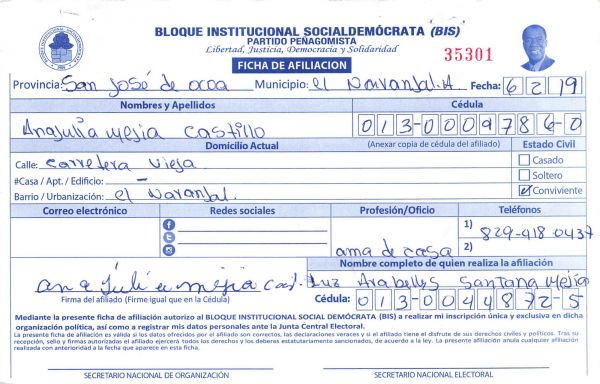 BLOQUE INSTITUCIONAL SOCIALDEMÓCRATA (BIS)
PARTIDO PEÑAGOMISTA
Libertad, Justicia, Democracia y Solidaridad
35301
FICHA DE AFILIACION
Provincia: San José de ocoa Municipio: el Naranjal.A. Fecha: 6 2 19
Nombres y Apellidos Cédula
Anajulia mejia Castillo 013-0009786-0
Domicilio Actual (Anexar copia de cédula del afiliado) Estado Civil
Calle: Carretera Vieja Casado
#Casa / Apt. / Edificio: - Soltero
Barrio / Urbanización: el Naranjal. Conviviente
Correo electrónico Redes sociales Profesión/Oficio Teléfonos
1) 829-418 0437
ama de casa 2)
Nombre completo de quien realiza la afiliación
ana Julia mejia Cast. Luz Arabellys Santana Mejia
Firma del afiliado (Firme igual que en la Cédula) Cédula: 013-0044872-5
Mediante la presente ficha de afiliación autorizo al BLOQUE INSTITUCIONAL SOCIAL DEMÓCRATA (BIS) a realizar mi inscripción única y exclusiva en dicha
organización política, así como a registrar mis datos personales ante la Junta Central Electoral.
La presente ficha de afiliación es válida si los datos ofrecidos por el afiliado son correctos, las declaraciones veraces y si el afiliado tiene el disfrute de sus derechos civiles y políticos. Tras su
recepción, sello y firmas autorizadas el afiliado ejercerá todos los derechos y los deberes estatutariamente sancionados, de acuerdo a la ley. La presente afiliación anula cualquier afiliación
realizada con anterioridad a la fecha que aparece en esta ficha.
SECRETARIO NACIONAL DE ORGANIZACIÓN SECRETARIO NACIONAL ELECTORAL